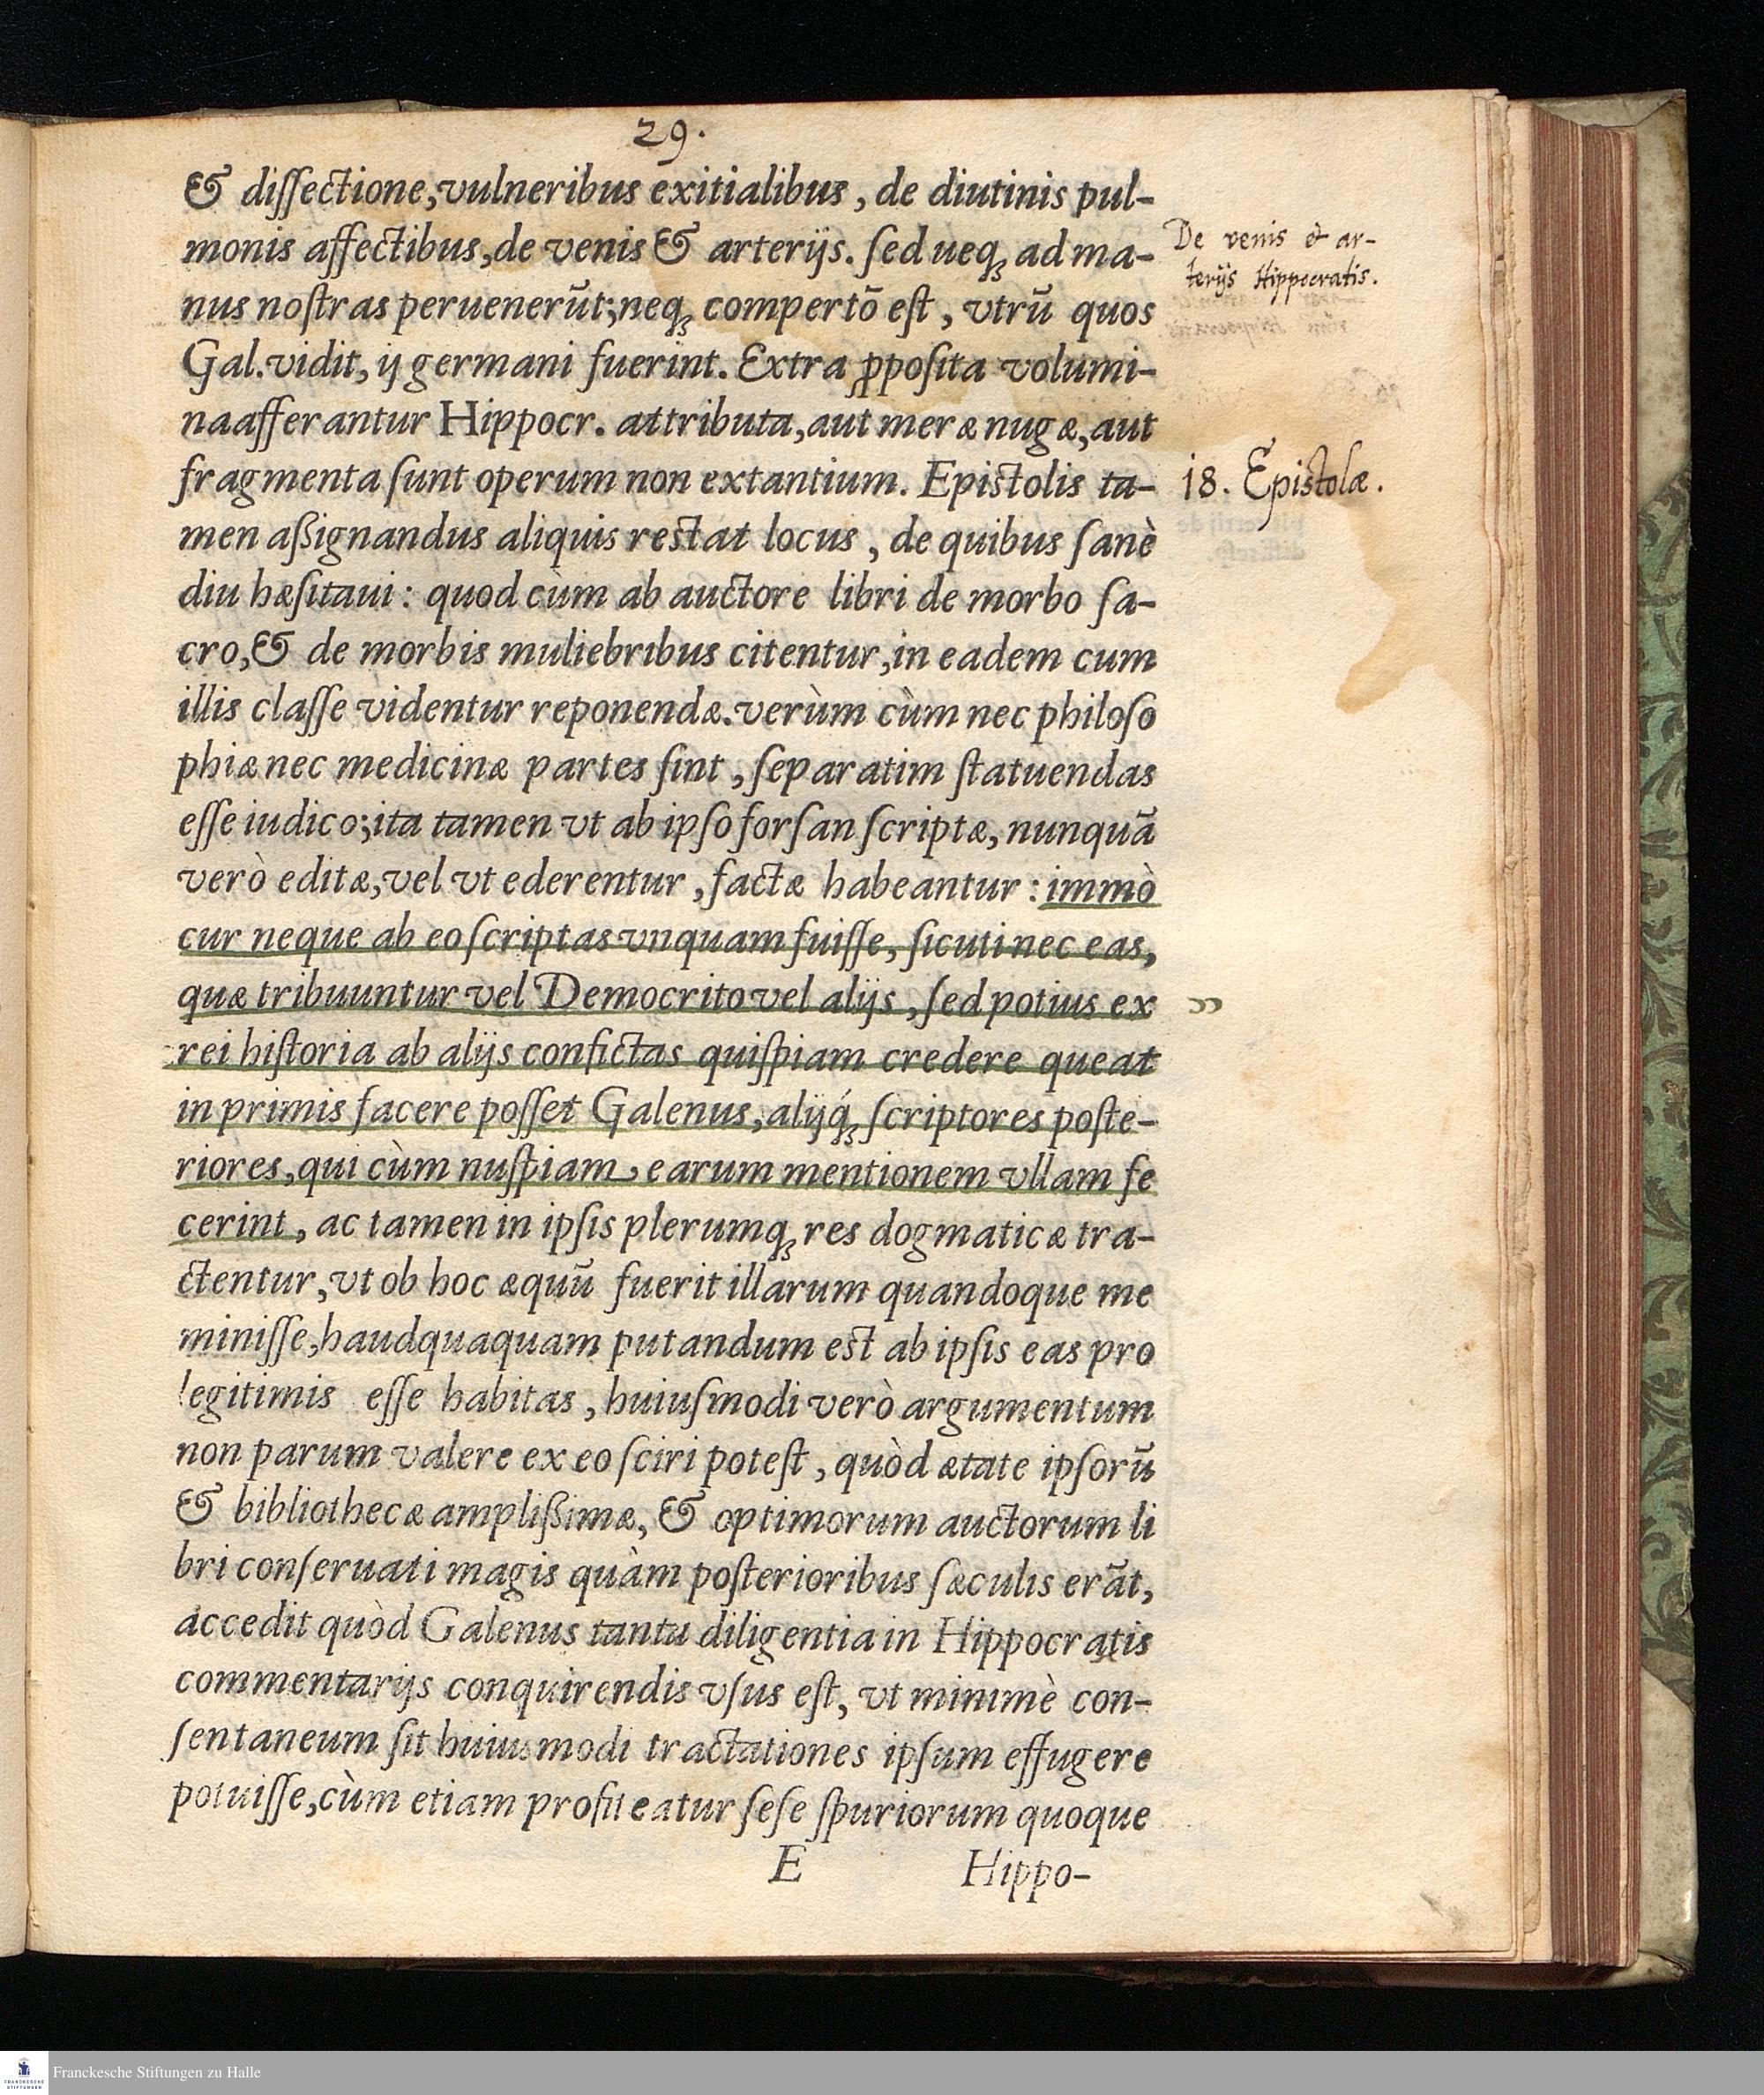 29.
& dissectione, vulneribus exitialibus, de diutinis pul-
monis affectibus, de venis & arterijs. sed ueqꝫ ad ma-
nus nostras peruenerūt; neqꝫ compertō est, vtrū quos
Gal. vidit, ij germani fuerint. Extra ꝓposita volumi-
na afferantur Hippocr. attributa, aut meræ nugæ, aut
fragmenta sunt operum non extantium. Epistolis ta-
men aßignandus aliquis restat locus, de quibus sanè
diu hæsitaui: quod cùm ab auctore libri de morbo sa-
cro, & de morbis muliebribus citentur, in eadem cum
illis classe videntur reponendæ. verùm cùm nec philoso
phiæ nec medicinæ partes sint, separatim statuendas
esse iudico; ita tamen vt ab ipso forsan scriptæ, nunquā
verò editæ, vel vt ederentur, factæ habeantur: immò
cur neque ab eo scriptas vnquam fuisse, sicuti nec eas,
quæ tribuuntur vel Democrito vel alijs, sed potius ex
rei historia ab alijs confictas quispiam credere queat
in primis facere posset Galenus, alijq́ꝫ scriptores poste-
riores, qui cùm nuspiam earum mentionem vllam fe
cerint, ac tamen in ipsis plerumqꝫ res dogmaticæ tra-
ctentur, vt ob hoc æquū fuerit illarum quandoque me
minisse, haudquaquam putandum est ab ipsis eas pro
legitimis esse habitas, huiusmodi verò argumentum
non parum valere ex eo sciri potest, quòd ætate ipsorū
& bibliothecæ amplißimæ, & optimorum auctorum li
bri conseruati magis quàm posterioribus sæculis erāt,
accedit quòd Galenus tanta diligentia in Hippocratis
commentarijs conquirendis vsus est, vt minimè con-
sentaneum sit huiusmodi tractationes ipsum effugere
potuisse, cùm etiam profiteatur sese spuriorum quoque
E Hippo-
De venis & ar-
terijs Hippocratis.
18. Epistolæ.
Franckesche Stiftungen zu Halle
FRANCKESCHE
STIFTUNGEN